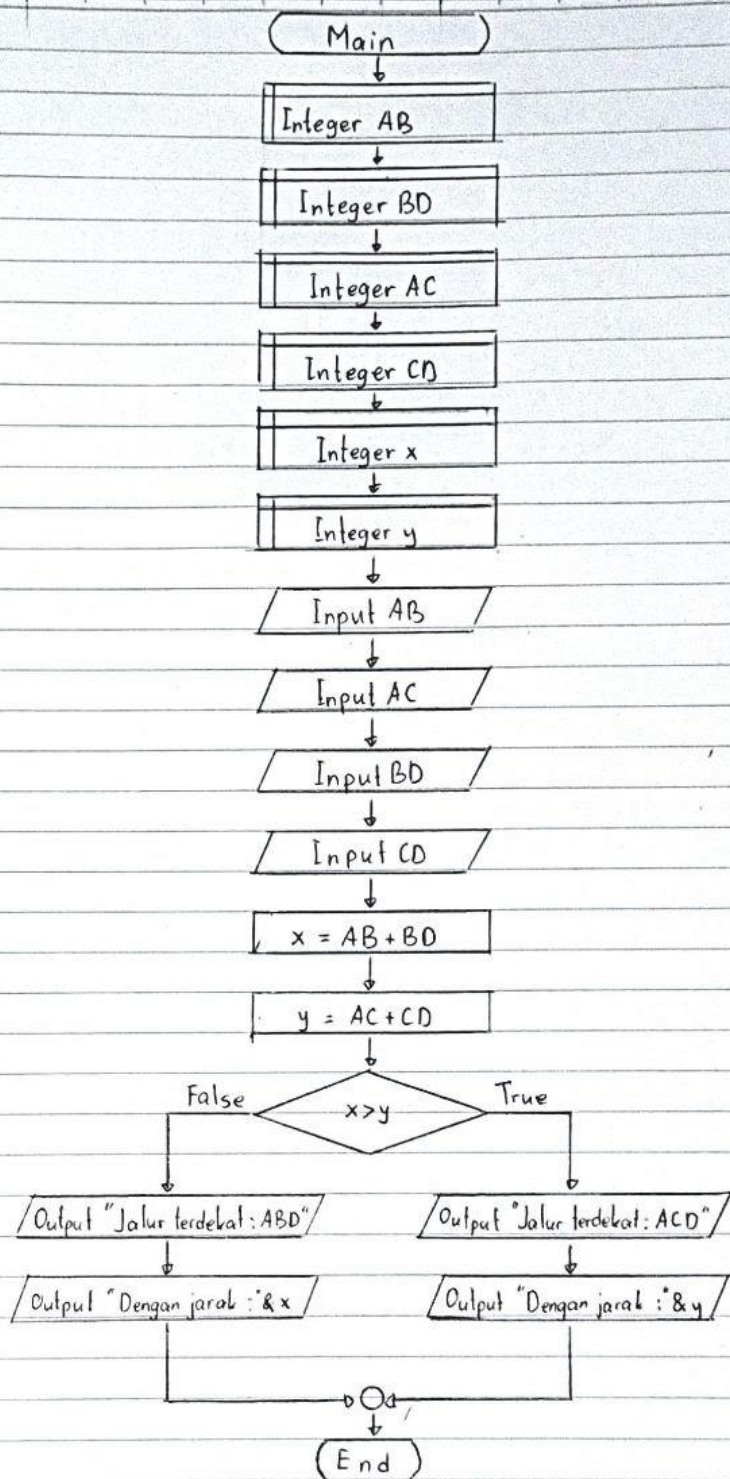 Main
Integer AB
Integer BD
Integer AC
Integer CD
Integer x
Integer y
Input AB
Input AC
Input BD
Input CD
x = AB + BD
y = AC + CD
False
x>y
True
Output "Jalur terdekat : ABD"
Output "Jalur terdekat : ACD"
Output "Dengan jarak :" & x
Output "Dengan jarak :" & y
End